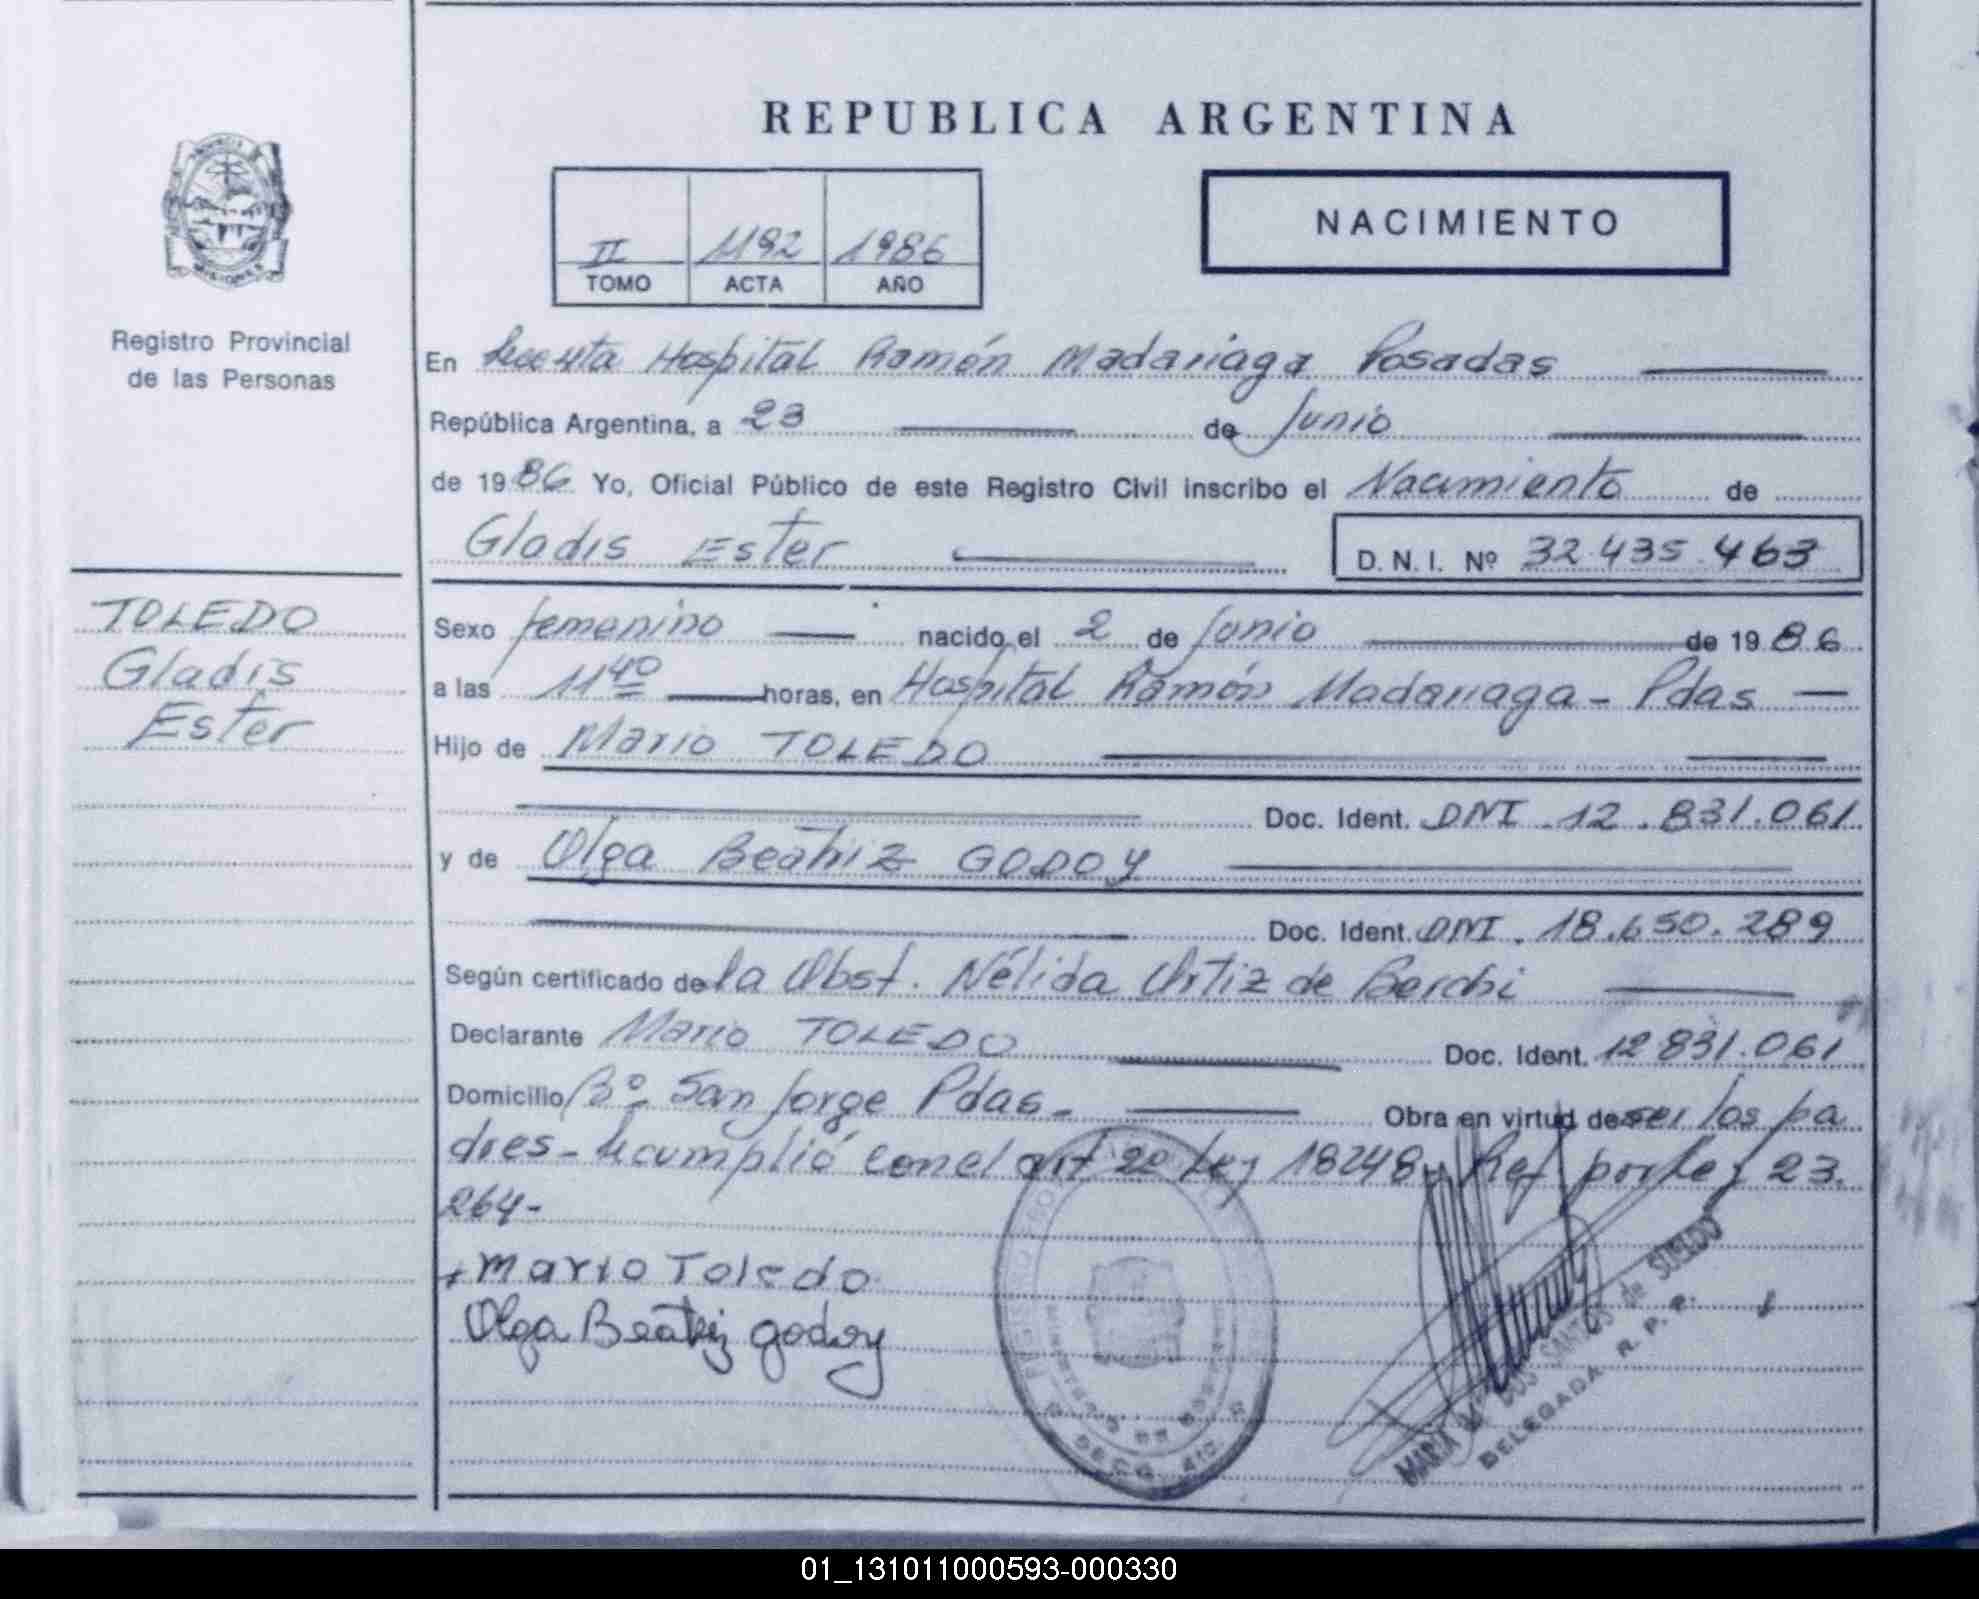 REPUBLICA ARGENTINA
II 1192 1986
TOMO ACTA AÑO
NACIMIENTO
Registro Provincial
de las Personas
En Hospital Ramón Madariaga Posadas
República Argentina, a 23 de Junio
de 1986 Yo, Oficial Público de este Registro Civil inscribo el Nacimiento de
Gladis Ester D. N. I. Nº 32.435.463
TOLEDO
Gladis
Ester
Sexo femenino nacido el 2 de Junio de 1986
a las 11 40 horas, en Hospital Ramón Madariaga - Pdas
Hijo de Mario TOLEDO
Doc. Ident. DNI 12.831.061
y de Olga Beatriz GODOY
Doc. Ident. DNI. 18.650.289
Según certificado de la Obst. Nélida Ortiz de Berchi
Declarante Mario TOLEDO Doc. Ident. 12831.061
Domicilio Bº San Jorge Pdas - Obra en virtud de ser los pa
dres - Se cumplió con el art 2º Ley 18248 Ref por Ley 23.
264 -
Mario Toledo
Olga Beatriz godoy
MARIA DOS SANTOS de SUELDO
DELEGADA R. P. P.
01_131011000593-000330